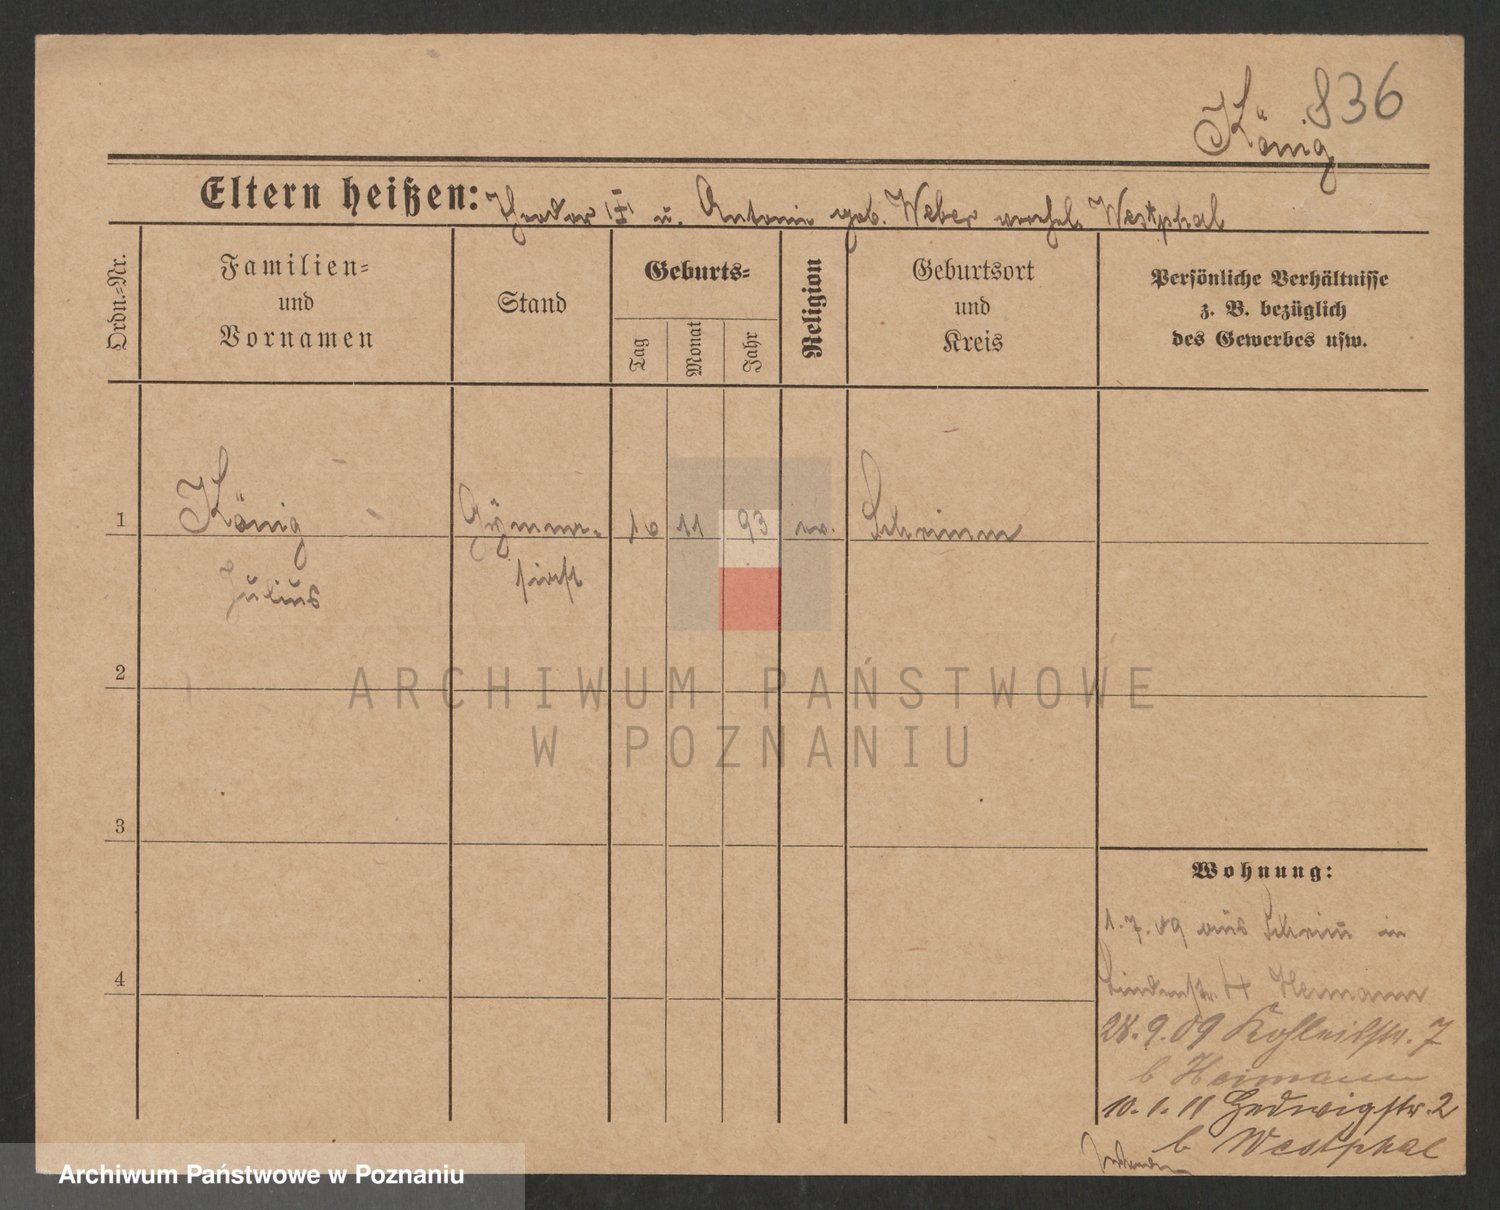 836
König
Eltern heißen: Theodor u. Antonie geb. Weber verehel. Westphal
Ordn.=Nr.
Familien=
und
Vornamen
Stand
Geburts=
Tag
Monat
Jahr
Religion
Geburtsort
und
Kreis
Persönliche Verhältnisse
z. B. bezüglich
des Gewerbes usw.
1
König
Gymna-
10
11
93
ev.
Schrimm
siast
Julius
2
ARCHIWUM PAŃSTWOWE
W POZNANIU
3
Wohnung:
1.7.09 aus Schrim in
4
Lindenstr. 4 Heimann
28.9.09 Kohleisstr. 7
b Heimann
10.1.11 Hedwigstr. 2
b Westphal
Archiwum Państwowe w Poznaniu